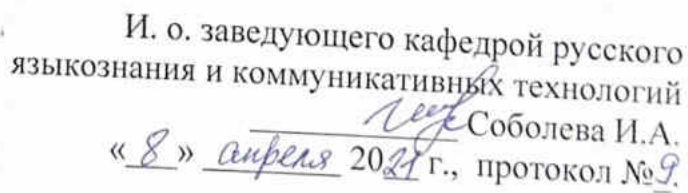 И. о. заведующего кафедрой русского
языкознания и коммуникативных технологий
Соболева И.А.
« 8 » апреля 2021 г., протокол № 9.